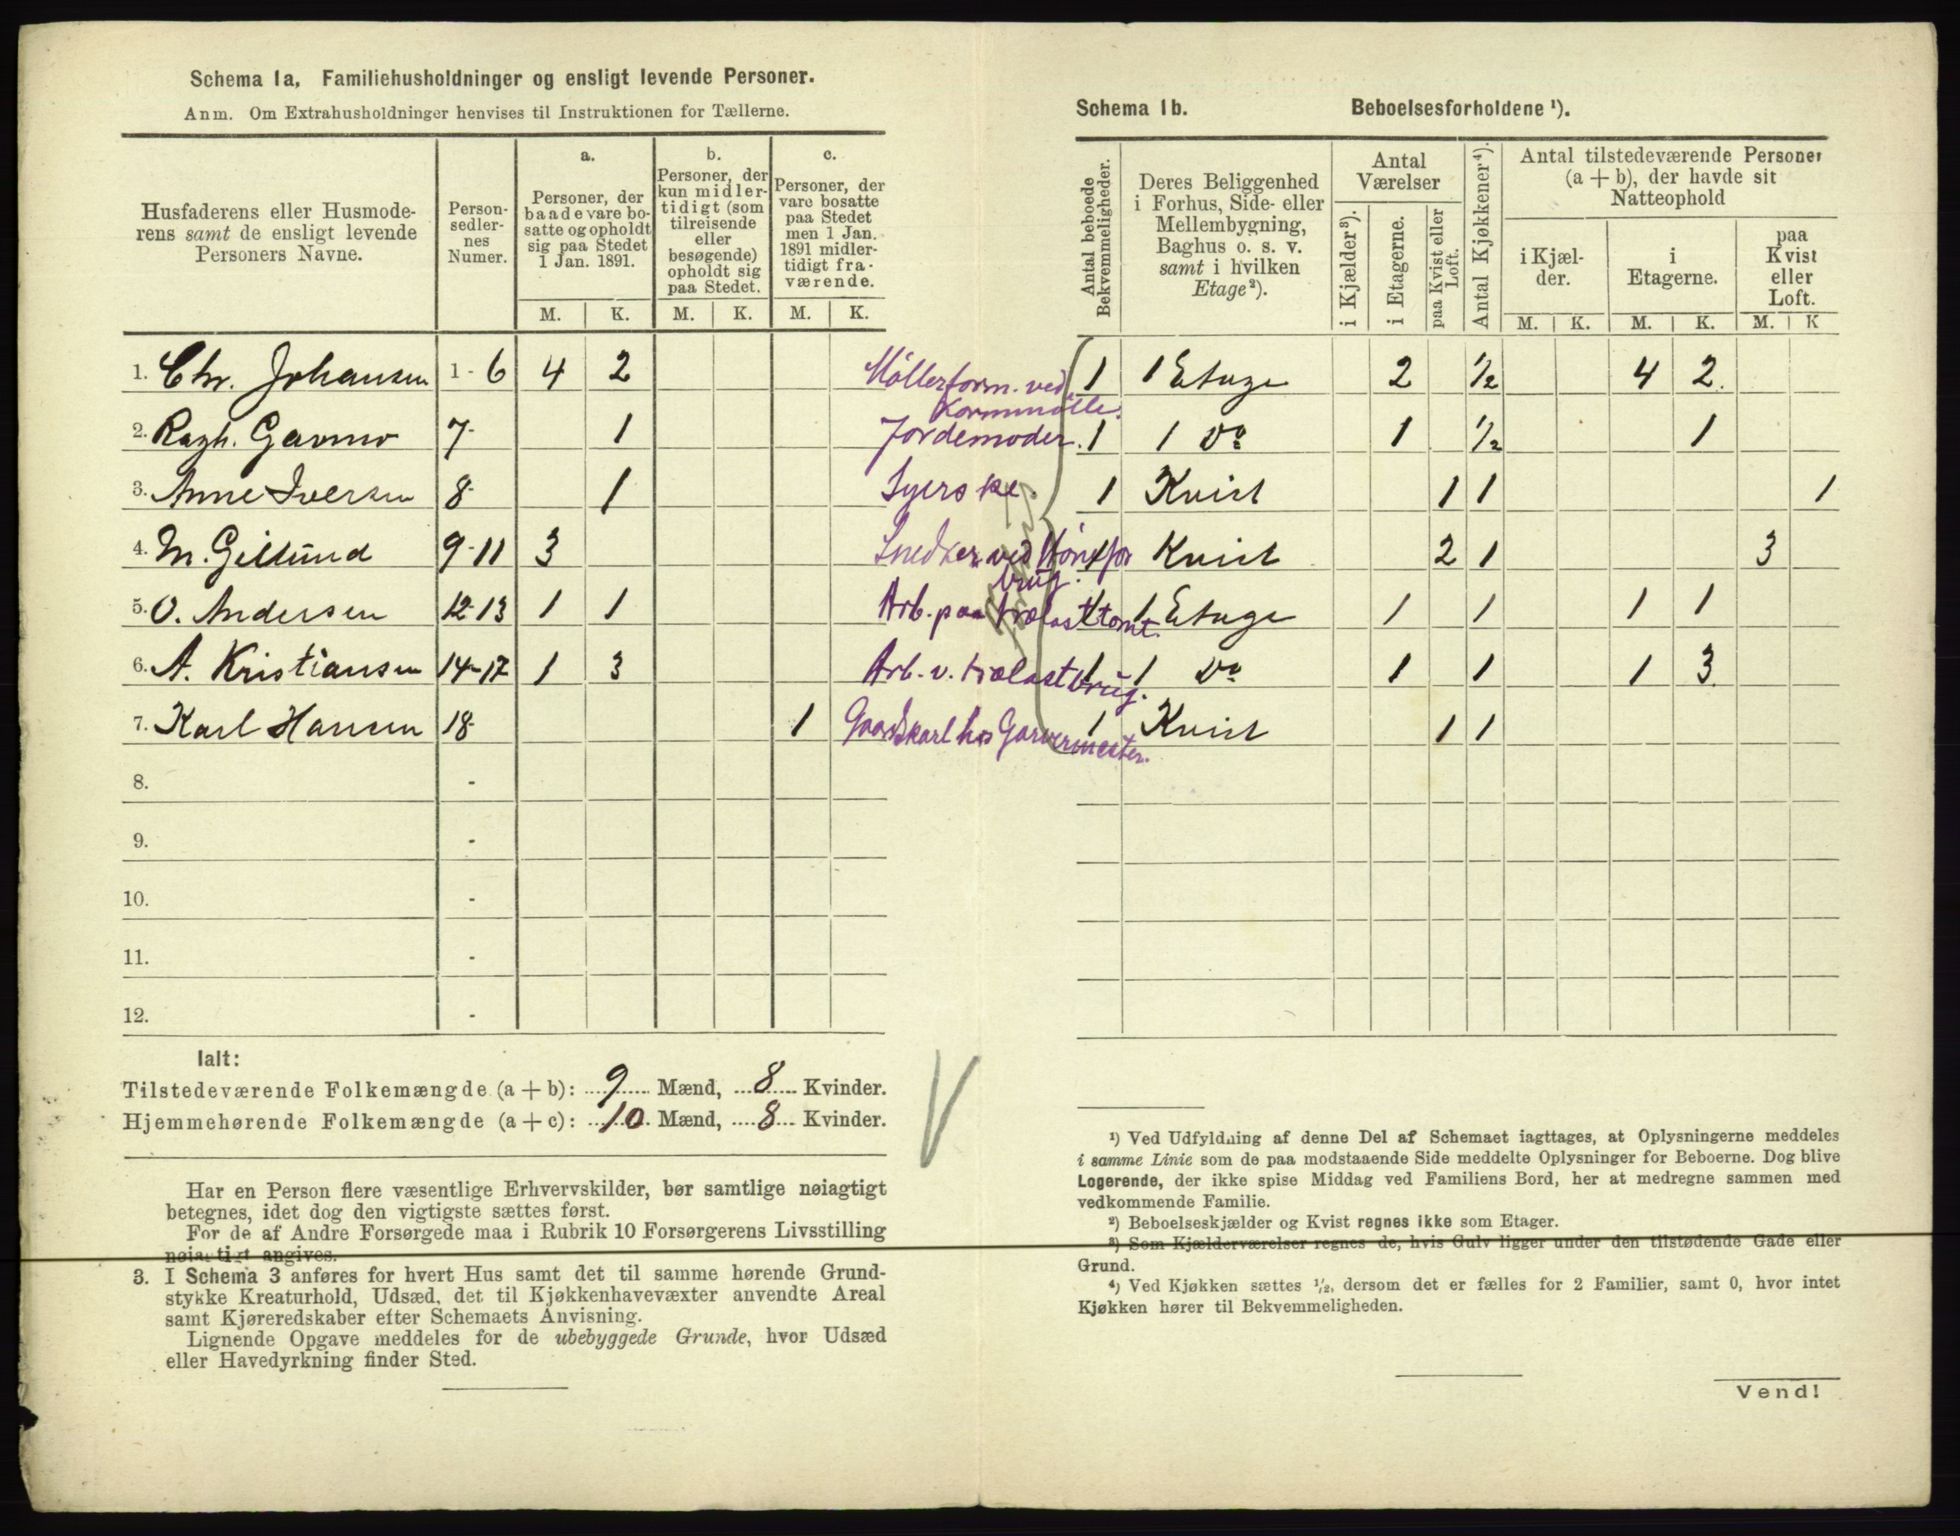 Schema 1a, Familiehusholdninger og ensligt levende Personer.
Anm. Om Extrahusholdninger henvises til Instruktionen for Tællerne.
Husfaderens eller Husmode-
rens samt de ensligt levende
Personers Navne.
Person-
sedler-
nes
Numer.
a.
Personer, der
baade vare bo-
satte og opholdt
sig paa Stedet
1 Jan. 1891.
b.
Personer, der
kun midler-
tidigt (som
tilreisende
eller
besøgende)
opholdt sig
paa Stedet.
c.
Personer, der
vare bosatte
paa Stedet
men 1 Jan.
1891 midler-
tidigt fra-
værende.
M. K. M. K. M. K.
1. Chr. Johansen 1-6 4 2 Møllerform. ved
Kornmølle.
2. Ragh. 7- 1 Jordemoder.
3. Anne Iversen 8- 1 Syerske.
4. M. Gillund 9-11 3 Snedker ved
brug.
5. O. Andersen 12-13 1 1 Arb. paa Trælasttomt.
6. A. Kristiansen 14-17 1 3 Arb. v. trælastbrug.
7. Karl Hansen 18- 1 Gaardskarl hos Garvermester.
8. -
9. -
10. -
11. -
12. -
Ialt:
Tilstedeværende Folkemængde (a + b): 9 Mænd, 8 Kvinder.
Hjemmehørende Folkemængde (a + c): 10 Mænd, 8 Kvinder.
Har en Person flere væsentlige Erhvervskilder, bør samtlige nøiagtigt
betegnes, idet dog den vigtigste sættes først.
For de af Andre Forsørgede maa i Rubrik 10 Forsørgerens Livsstilling
nøiagtigt angives.
3. I Schema 3 anføres for hvert Hus samt det til samme hørende Grund-
stykke Kreaturhold, Udsæd, det til Kjøkkenhavevæxter anvendte Areal
samt Kjøreredskaber efter Schemaets Anvisning.
Lignende Opgave meddeles for de ubebyggede Grunde, hvor Udsæd
eller Havedyrkning finder Sted.
Schema 1b. Beboelsesforholdene ¹).
Antal beboede
Bekvemmeligheder.
Deres Beliggenhed
i Forhus, Side- eller
Mellembygning,
Baghus o. s. v.
samt i hvilken
Etage²).
Antal
Værelser
i Kjælder³).
i Etagerne.
paa Kvist eller
Loft.
Antal Kjøkkener⁴).
Antal tilstedeværende Personer
(a + b), der havde sit
Natteophold
i Kjæl-
der.
i
Etagerne.
paa
Kvist
eller
Loft.
M. K. M. K. M. K
1 1 Etage 2 1/2 4 2
1 1 Do 1 1/2 1
1 Kvist 1 1 1
1 Kvist 2 1 3
1 1 Etage 1 1 1 1
1 1 Do 1 1 1 3
1 Kvist 1 1
¹) Ved Udfyldning af denne Del af Schemaet iagttages, at Oplysningerne meddeles
i samme Linie som de paa modstaaende Side meddelte Oplysninger for Beboerne. Dog blive
Logerende, der ikke spise Middag ved Familiens Bord, her at medregne sammen med
vedkommende Familie.
²) Beboelseskjælder og Kvist regnes ikke som Etager.
³) Som Kjælderværelser regnes de, hvis Gulv ligger under den tilstødende Gade eller
Grund.
⁴) Ved Kjøkken sættes 1/2, dersom det er fælles for 2 Familier, samt 0, hvor intet
Kjøkken hører til Bekvemmeligheden.
Vend!